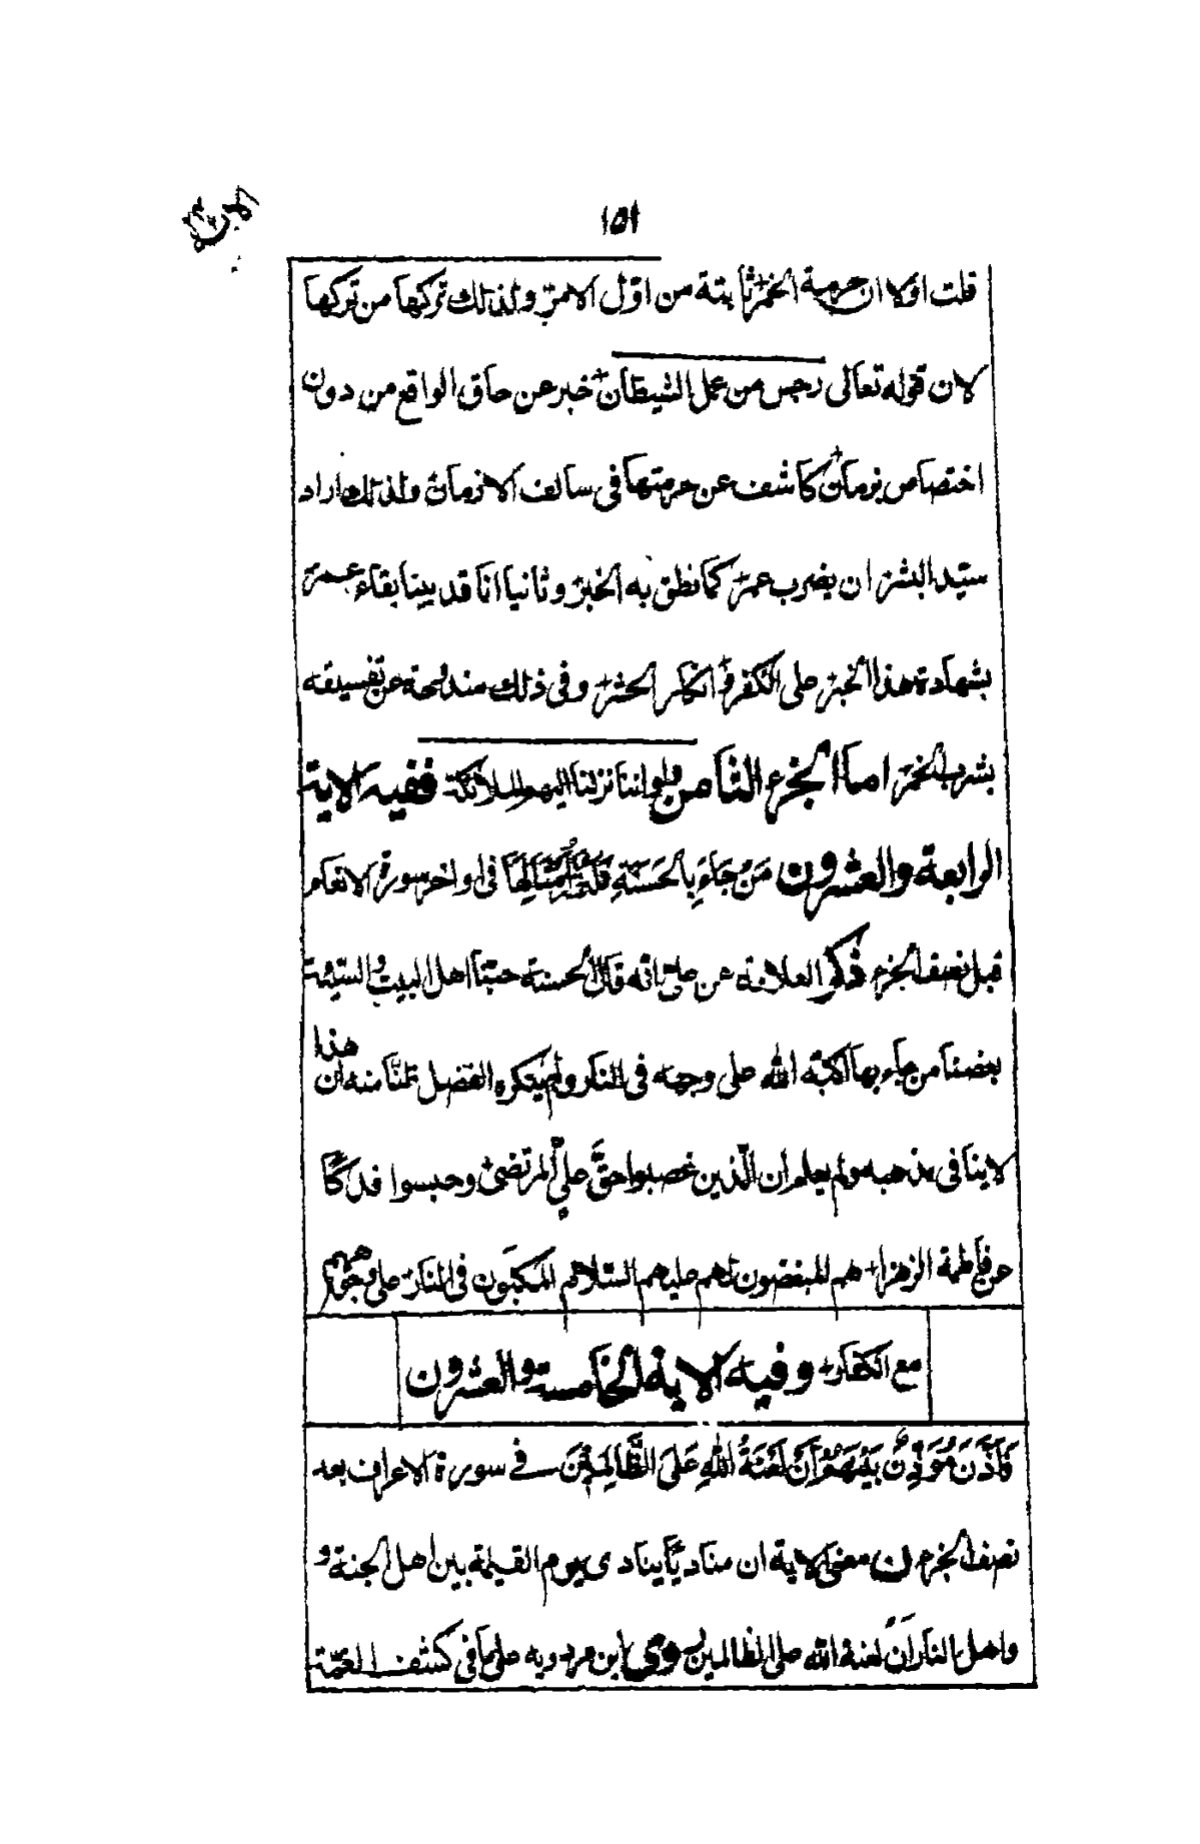 ١٥١
قلت اولا ان حرمة الخمر ثابتة من اوّل الامر ولذلك تركها من تركها
لان قوله تعالى رجس من عمل الشيطان خبر عن حاق الواقع من دون
اختصاص بزمان كاشف عن حرمتها فى سالف الازمان ولذلك اراد
سيّد البشر ان يضرب عمر كما نطق به الخبر وثانيا انا قد بينا بقاء عمر
بشهادة هذا الخبر على الكفر وانكار الحشر وفى ذلك مندوحة عن تفسيقه
بشرب الخمر اما الجزء الثامن ولو اننا نزلنا اليهم الملائكة ففيه الاية
الرابعة والعشرون مَنْ جَاءَ بِالْحَسَنَةِ فَلَهُ عَشْرُ أَمْثَالِهَا فى اواخر سورة الانعام
قبل نصف الجزء ذكر العلامة عن على انه قال الحسنة حبّنا اهل البيت والسيّئة
بغضنا من جاء بها اكبّه الله على وجهه فى النار ولم ينكره الفضل ظنّا منه ان هذا
لاينافى مذهبه ولم يعلم ان الّذين غصبوا حقَّ عليٍّ المرتضى وحبسوا فدكًا
عن فاطمة الزهراء هم المبغضون لهم عليهم السّلام هم المكبّون فى النار على وجوههم
مع الكفار وفيه الاية الخامسة والعشرون
فَأَذَّنَ مُؤَذِّنٌ بَيْنَهُمْ أَنْ لَعْنَةُ اللهِ عَلَى الظَّالِمِينَ فى سورة الاعراف بعد
نصف الجزء ان معنى الاية ان مناديًا ينادى يوم القيمة بين اهل الجنة و
واهل النار ان لعنة الله على الظالمين روى ابن مردويه على ما فى كشف الغمّة